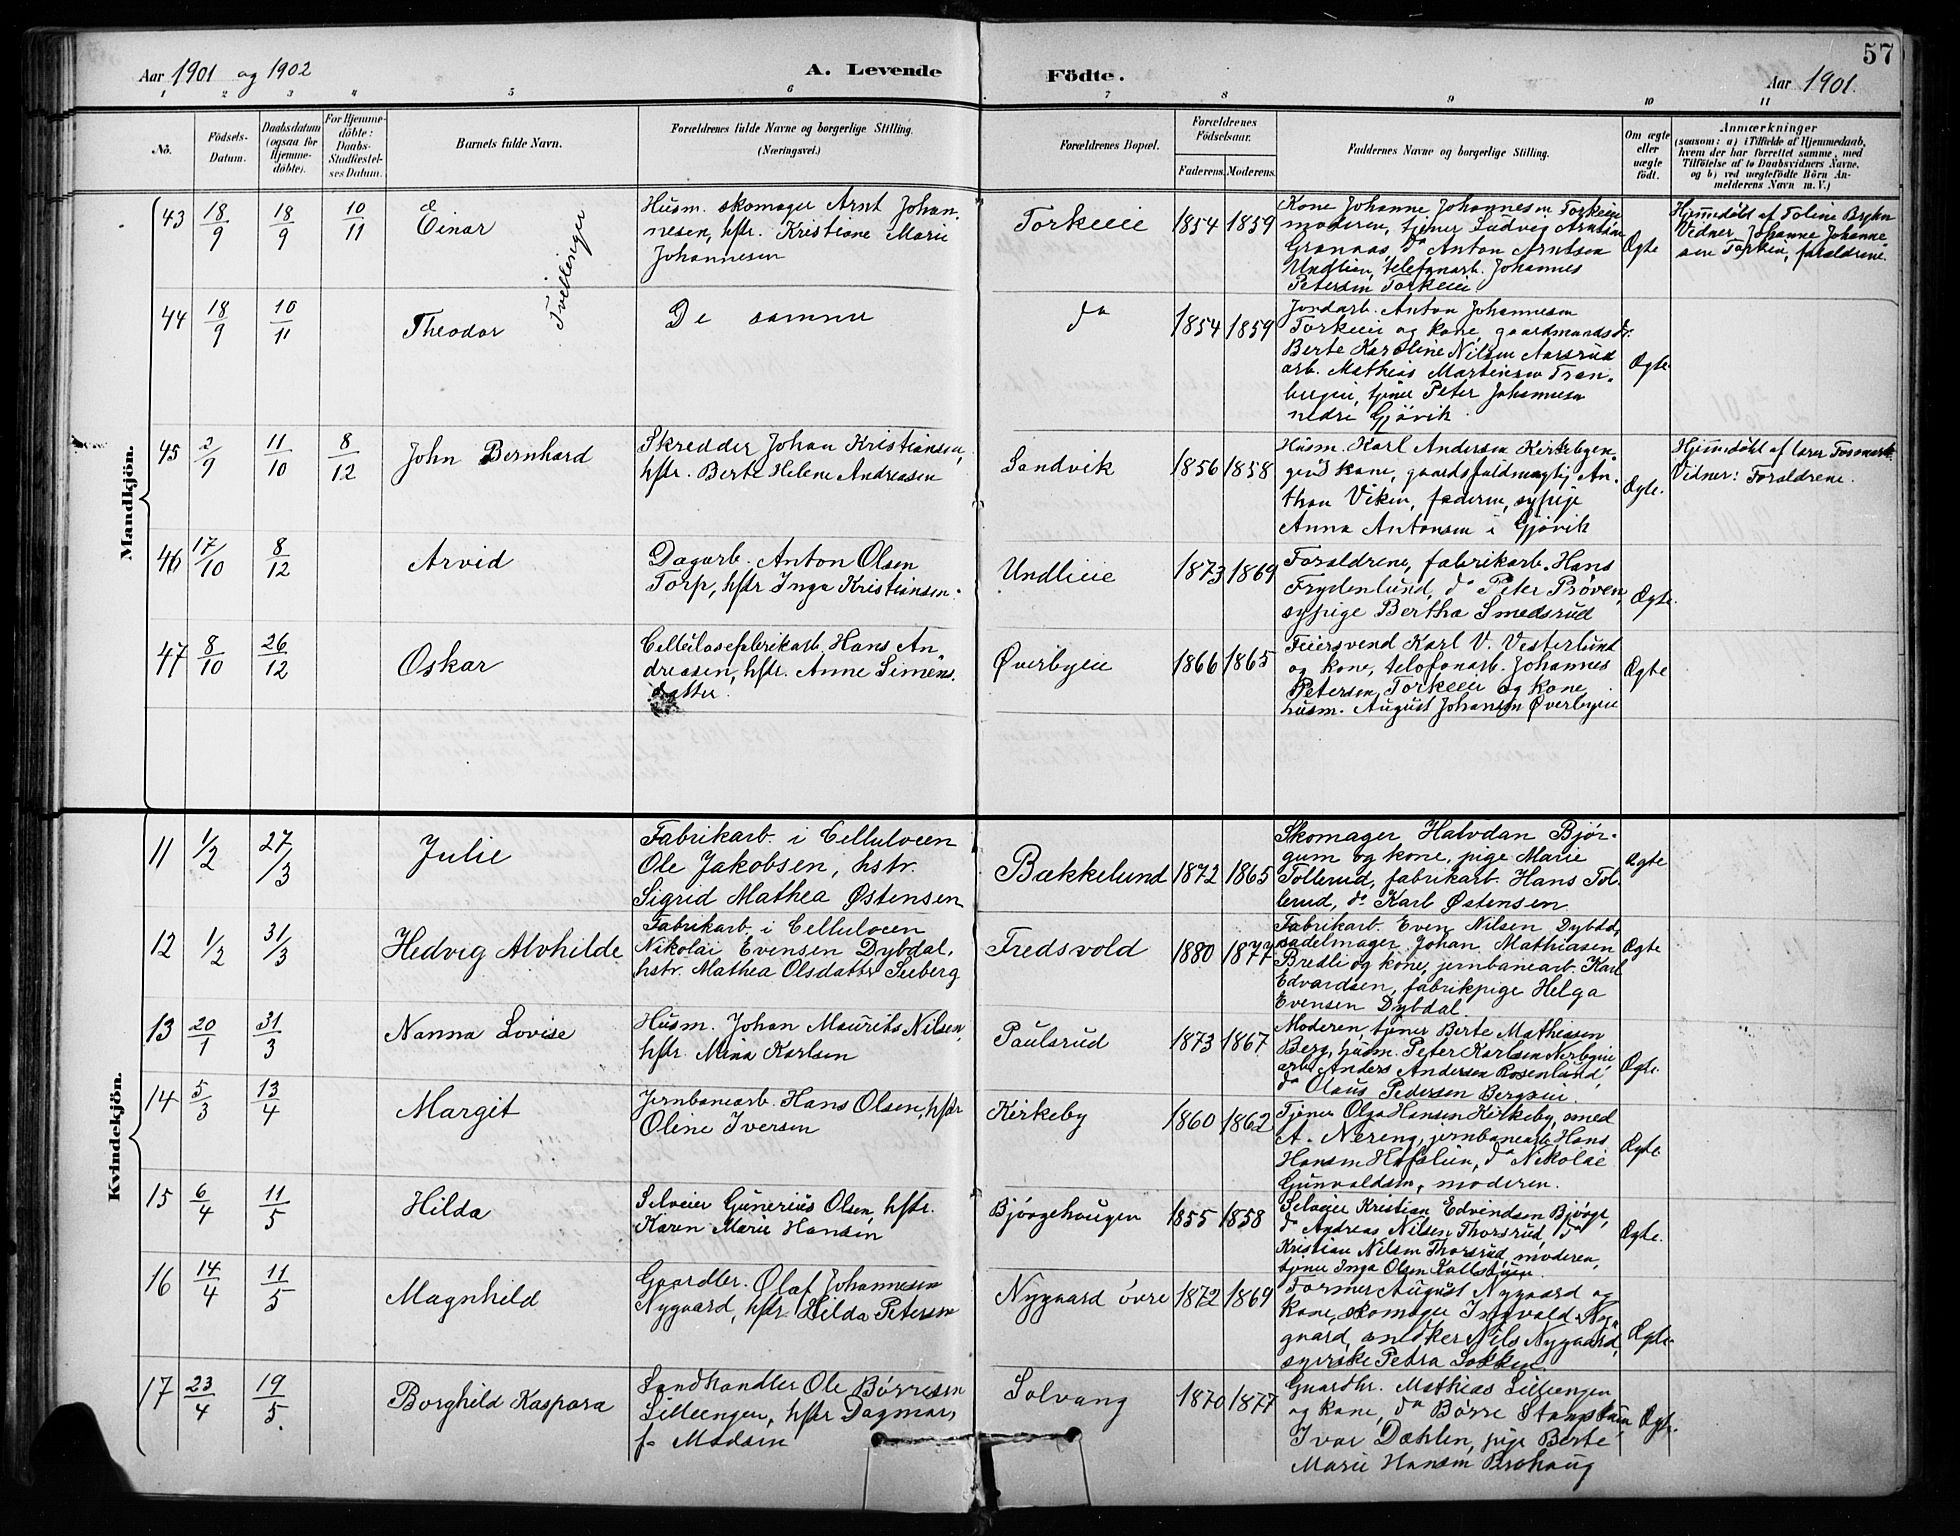 57
Aar 1901 og 1902
A. Levende
Födte.
Aar 1901.
1 2 3 4 5 6 7 8 9 10 11
No.
Födsels-
Datum.
Daabsdatum
(ogsaa for
Hjemme-
döbte).
For Hjemme-
döbte:
Daabs-
Stadfæstel-
ses Datum.
Barnets fulde Navn.
Forældrenes fulde Navne og borgerlige Stilling.
(Næringsvei.)
Forældrenes Bopæl.
Forældrenes
Födselsaar.
Faderens. Moderens.
Faddernes Navne og borgerlige Stilling.
Om ægte
eller
uægte
födt.
Anmærkninger
(saasom: a) i Tilfælde af Hjemmedaab,
hvem der har forrettet samme, med
Tilföielse af to Daabsvidners Navne,
og b) ved uægtefödte Börn An-
melderens Navn m. V.)
Mandkjön.
43 18/9 18/9 10/11
Einar
Tvillinger
Husm. skomager Arnt Johan-
nesen, hstr. Kristiane Marie
Johannesen
Torkeeie
1854 1859
Kone Johanne Johannesen Torkeeie
moderen, tjener Ludvig Arntsen
Granaas, do Anton Arntsen
Undlien, telefonarb. Johannes
Petersen Torkeeie
Ægte
Hjemmedöbt af Toline
Vidner Johanne Johanne-
sen Torkeie, forældrene
44 18/9 10/11
Theodor
De samme
do
1854 1859
Jordarb. Anton Johannesen
Torkeeie og kone, gaardmandsdr.
Berte Karoline Nilsen Aarsrud
arb. Mathias Martinsen Tran-
bergeie, tjener Peter Johannesen
nedre Gjövik
Ægte
45 2/9 11/10 8/12
John Bernhard
Skredder Johan Kristiansen,
hstr. Berte Helene Andreasen
Sandvik
1856 1858
Husm. Karl Andersen Kirkebyen-
gens kone, gaardsfuldmægtig An-
thon Viken, faderen, sypige
Anna Antonsen i Gjövik
Ægte.
Hjemmedöbt af lærer Fosmark
Vidner: Forældrene.
46 17/10 8/12
Arvid
Dagarb. Anton Olsen
Torp, hstr Inga Kristiansen.
Undlieie
1873 1869
Forældrene, fabrikarb. Hans
Frydenlund, do Peter Pröven,
sypige Bertha Smedsrud
Ægte.
47 8/10 26/12
Oskar
Cellulosefabrikarb. Hans An-
dreasen, hstr. Anne Simens-
datter.
Øverbyeie
1866 1865
Feiersvend Karl V. Vesterlund
og kone, telefonarb. Johannes
Petersen, Torkeeie og kone,
husm. August Johansen Øverbyeie
Ægte
Kvindekjön.
11 1/2 27/3
Julie
Fabrikarb. i Celluloeen
Ole Jakobsen, hstr.
Sigrid Mathea Østensen
Bækkelund
1872 1865
Skomager Halvdan Bjør-
gum og kone, pige Marie
Tollerud, fabrikarb. Hans Tol-
lerud, do Karl Østensen
Ægte
12 1/2 31/3
Hedvig Alvhilde
Fabrikarb. i Celluloeen
Nikolai Evensen Dybdal,
hstr. Mathea Olsdatter Seeberg
Fredsvold
1880 1877
Fabrikarb. Even Nilsen Dybdal,
sadelmager Johan Mathiasen
Bredli og kone, jernbanearb. Karl
Edvardsen, fabrikpige Helga
Evensen Dybdal.
Ægte
13 20/1 31/3
Nanna Lovise
Husm. Johan Maurits Nilsen,
hstr. Mina Karlsen
Paulsrud
1873 1867
Moderen, tjener Berte Mathiassen
Berg, husm. Peter Karlsen Nerbyeie,
arb. Anders Andersen Rosenlund,
do Olaus Pedersen Bergseie.
Ægte.
14 5/3 13/4
Margit
Jernbanearb. Hans Olsen, hstr
Oline Iversen
Kirkeby
1860 1862
Tjener Olga Hansen Kirkeby, smed
A. Nereng, jernbanearb. Hans
Hansen Hofslien, do Nikolai
Gunvaldsen, moderen.
Ægte.
15 6/4 11/5
Hilda
Selveier Gunerius Olsen, hstr.
Karen Marie Hansen
Bjørgehaugen
1855 1858
Selveier Kristian Edvindsen Bjørge,
do Andreas Nilsen Thorsrud, do
Kristian Nilsen Thorsrud, moderen,
tjener Inga Olsen
Ægte.
16 14/4 11/5
Magnhild
Gaardbr. Olaf Johannesen
Nygaard, hstr. Hilda Petersen
Nygaard övre
1872 1869
Former August Nygaard og
kone, skomager Ingvald Ny-
gaard, snedker Nils Nygaard,
syerske Petra Sokken.
Ægte.
17 23/4 19/5.
Borghild Kaspara
Landhandler Ole Børresen
Lilleengen, hstr Dagmar,
f. Madsen
Solvang
1870 1877
Gaardbr. Mathias Lilleengen
og kone, do Børre
Ivar Dæhlen, pige Berte
Marie Hansen Brohaug
Ægte.